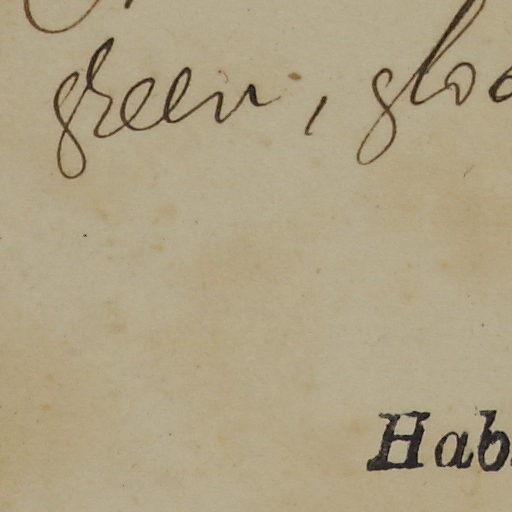 green, glo
Hab.